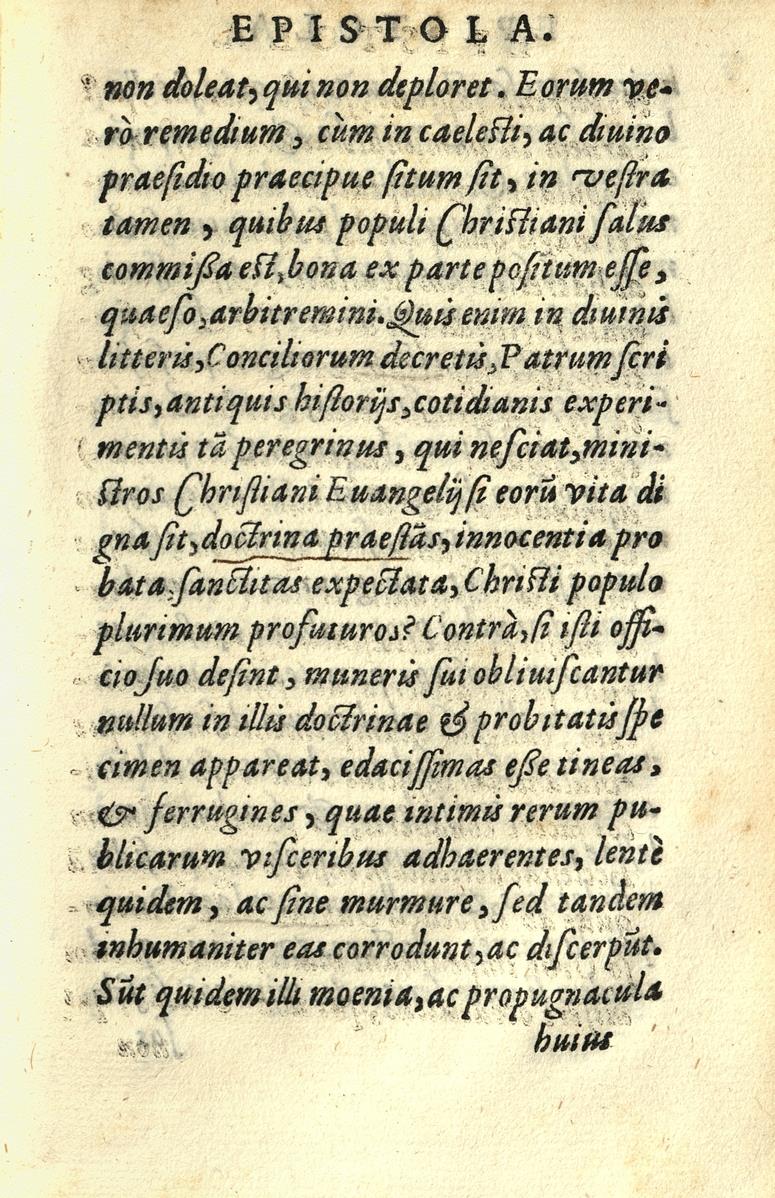 EPISTOLA.
non doleat, qui non deploret. Eorum ve-
rò remedium, cùm in caelesti, ac diuino
praesidio praecipue situm sit, in vestra
tamen, quibus populi Christiani salus
commißa est, bona ex parte positum esse,
quaeso, arbitremini. Quis enim in diuinis
litteris, Conciliorum decretis, Patrum scri
ptis, antiquis historijs, cotidianis experi-
mentis tā peregrinus, qui nesciat, mini-
stros Christiani Euangelij si eorū vita di
gna sit, doctrina praestās, innocentia pro
bata, sanctitas expectata, Christi populo
plurimum profuturos? Contrà, si isti offi-
cio suo desint, muneris sui obliuiscantur
nullum in illis doctrinae & probitatis spe
cimen appareat, edacissimas eße tineas,
& ferrugines, quae intimis rerum pu-
blicarum visceribus adhaerentes, lentè
quidem, ac sine murmure, sed tandem
inhumaniter eas corrodunt, ac discerpūt.
Sūt quidem illi moenia, ac propugnacula
huius